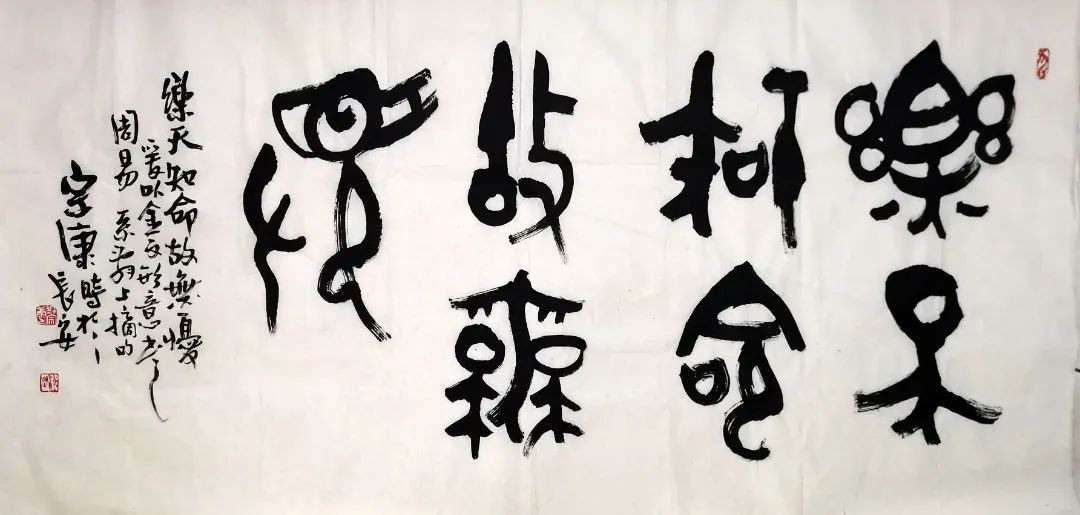 樂天
知命
故無
憂
樂天知命故無憂
爰以金文形意書之
周易系辞上摘句
宗康時於
長安